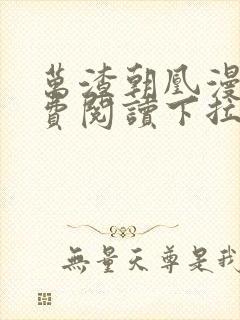 萬渣朝凰漫
費閱讀下拉
無量天尊是我